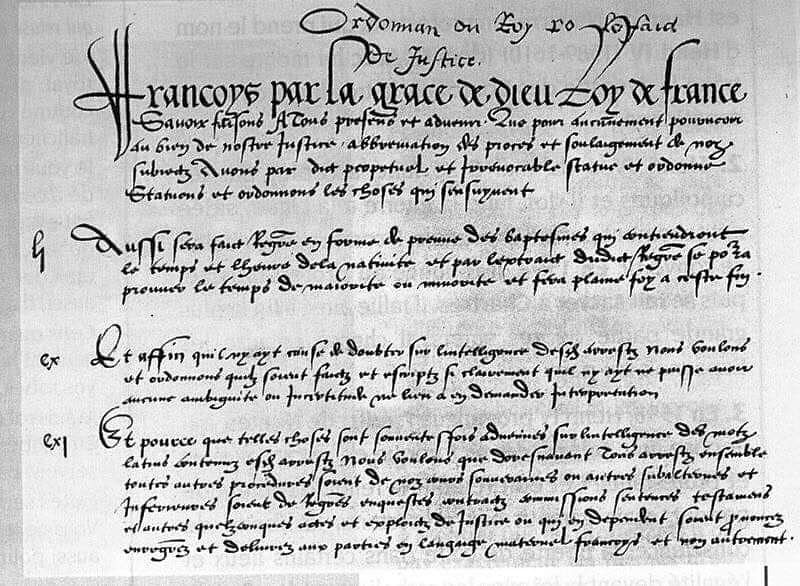 Ordonnan du Roy  le faid
De Justice.
Francoys par la grace de dieu Roy de france
Savoir faisons A Tous presens et advenir Que pour aucunement pourveoir
au bien de nostre Justice abbreviation des proces et soulaigement de noz
subiectz Avons par dict perpetuel et irrevocable statue et ordonne
Statuons et ordonnons les choses qui sensuyvent
Aussi sera faict Regre en forme de preuve des baptesmes qui contiendront
le temps et lheure dela nativite et par lextraict dudict Regre se pora
prouver le temps de maiorite ou minorite et fera plaine foy a ceste fin.
cx Et affin quil ny ayt cause de doubter sur lintelligence desd arrestz Nous voulons
et ordonnons quilz soient faictz et escriptz si clairement quil ny ayt ne puisse avoir
aucune ambiguite ou Incertitude ne lieu a en demander Interpretation
cxi Et pource que telles choses sont souventesfois advenues sur lintelligence des motz
latins contenuz esd arrestz Nous voulons que doresnavant Tous arrestz ensemble
toutes autres procedures soient de noz cours souveraines ou autres subalternes et
Inferieures soient de Regres enquestes contractz commissions sentences testamens
et autres quelzconques actes et exploictz de Justice ou qui en dependent soient pnoncez
enregrez et delivrez aux parties en langaige maternel francoys et non autrement.